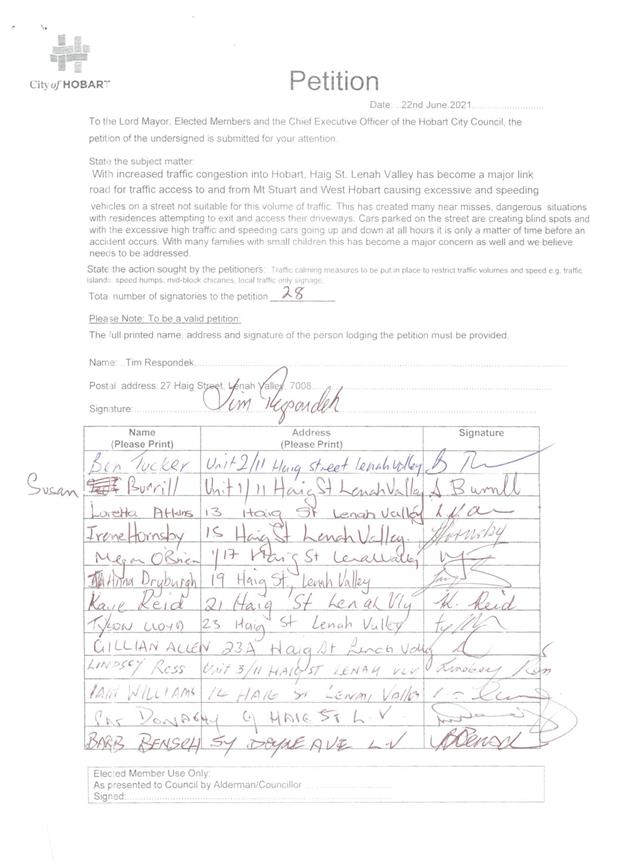 City of HOBART
Petition
Date: ..22nd June 2021..........................
To the Lord Mayor, Elected Members and the Chief Executive Officer of the Hobart City Council, the
petition of the undersigned is submitted for your attention.
State the subject matter:
With increased traffic congestion into Hobart, Haig St. Lenah Valley has become a major link
road for traffic access to and from Mt Stuart and West Hobart causing excessive and speeding
vehicles on a street not suitable for this volume of traffic. This has created many near misses, dangerous situations
with residences attempting to exit and access their driveways. Cars parked on the street are creating blind spots and
with the excessive high traffic and speeding cars going up and down at all hours it is only a matter of time before an
accident occurs. With many families with small children this has become a major concern as well and we believe
needs to be addressed.
State the action sought by the petitioners: Traffic calming measures to be put in place to restrict traffic volumes and speed e.g. traffic
islands, speed humps, mid-block chicanes, local traffic only signage.
Total number of signatories to the petition 28
Please Note: To be a valid petition:
The full printed name, address and signature of the person lodging the petition must be provided.
Name: ..Tim Respondek
Postal address: 27 Haig Street, Lenah Valley, 7008
Signature: Tim Respondek
Name Address Signature
(Please Print) (Please Print)
Ben Tucker Unit 2/11 Haig street Lenah Valley B T
Susan Burrill Unit 1/11 Haig St Lenah Valley S Burrill
Loretta Atkins 13 Haig St Lenah Valley
Irene Hornsby 15 Haig St Lenah Valley. Hornsby
Megan O'Brien 1/17 Haig St Lenah Valley
Anna Dryburgh 19 Haig St, Lenah Valley
Kaye Reid 21 Haig St Lenah Vly K. Reid
Tyson Lloyd 23 Haig St Lenah Valley
GILLIAN ALLEN 23A Haig St Lenah Valley
LINDSEY ROSS Unit 3/11 HAIG ST LENAH VLY Lindsey Ross
WILLIAMS 14 HAIG St LENAH Valley
PAT DONAGHY 9 HAIG ST L.V.
BARB BENSCH 54 DOYNE AVE L.V BBensch
Elected Member Use Only:
As presented to Council by Alderman/Councillor
Signed: